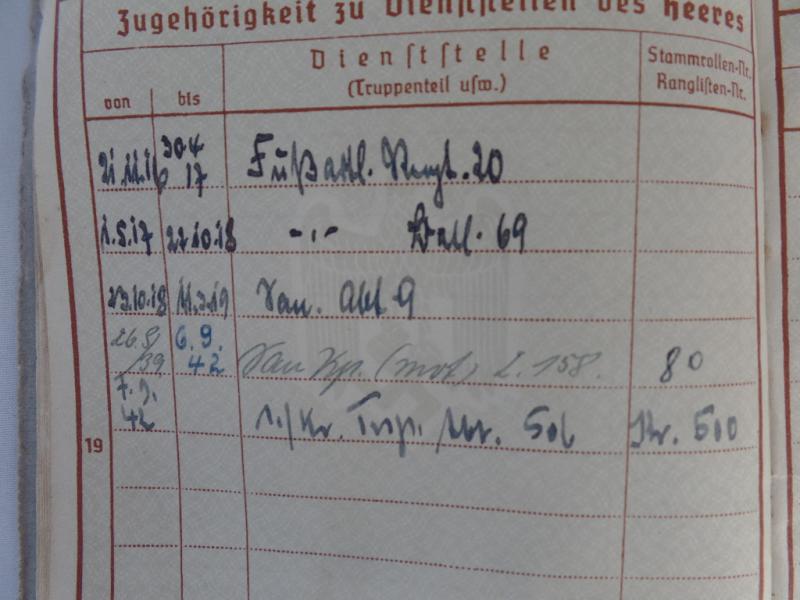 Zugehörigkeit zu Dienststellen des Heeres
von bis Dienststelle (Truppenteil usw.) Stammrollen-Nr. Ranglisten-Nr.
21.11.16 30.4.17 Fußartl. Regt. 20
1.5.17 22.10.18 -"- Batl. 69
23.10.18 11.3.19 San. Abt 9
26.8/39 6.9.42 San Kp. (mot) 2. 158. 80
7.9.42 1./Kr. Trsp. Abt. 506 Kr. 500
19